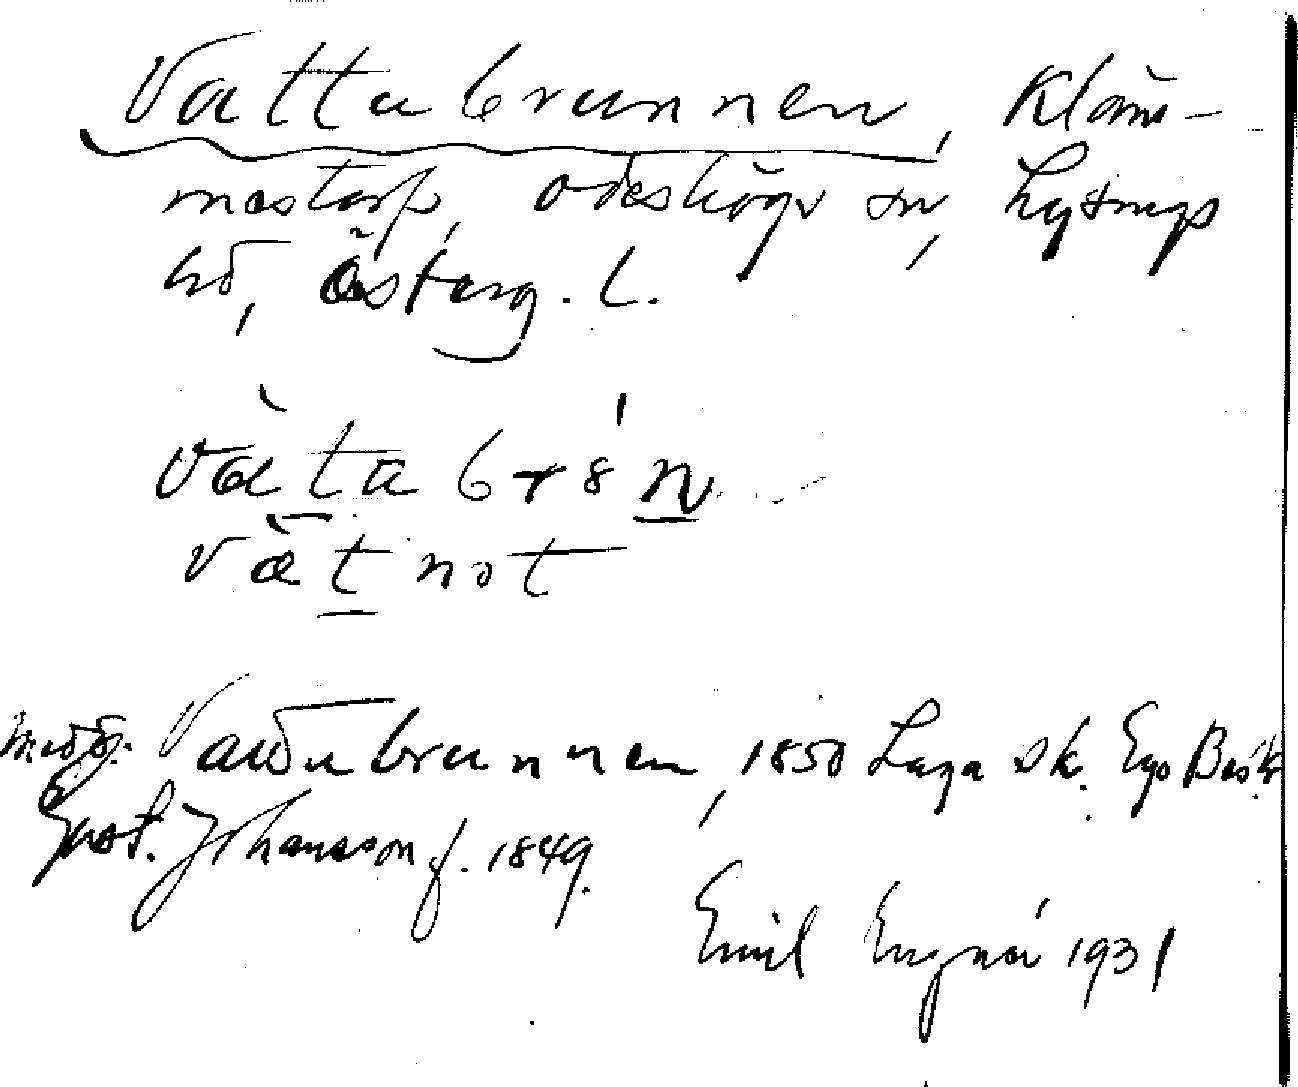 Vattubrunnen, Kläm-
mestorp, Ödeshögs sn, Lysings
hd, Österg. l.
vàtabr8´n
vætnot
Vattubrunnen, 1850 Laga sk. Ego Beskr
Gust. Johansson f. 1849.
Emil 1931